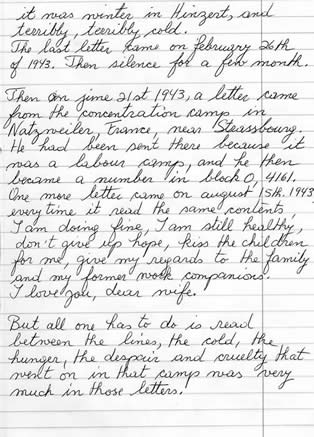 it was winter in Hinzert, and
teeribly, teeribly cold.
The last letter came on february 26th
of 1943. Then silence for a few month.
Then on june 21st 1943, a letter came
from the concentration camp in
Natzweiler, France, near Strassbourg.
He had been sent there because it
was a labour camp, and he then
became a number in block O, 4161.
One more letter came on august 15th. 1943
everytime it read the same contents,
I am doing fine, I am still healthy,
don't give up hope, kiss the children
for me, give my regards to the family
and my former work companions.
I love you, dear wife.
But all one has to do is read
between the lines, the cold, the
hunger, the despair and cruelty that
went on in that camp was very
much in those letters.